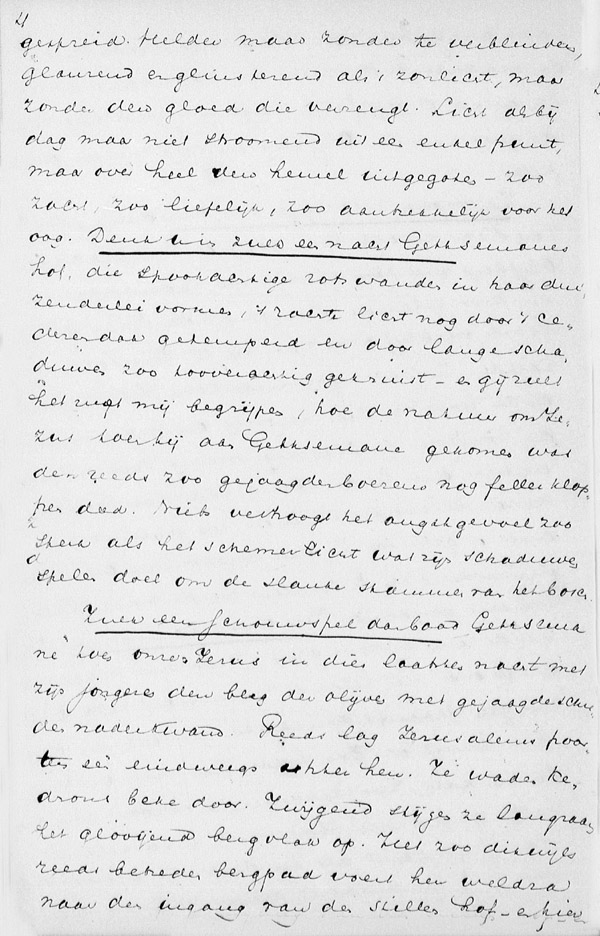 4
gespreid. Helder maar zonder te verblinden,
glanzend en glinsterend als 't zonlicht, maar
zonder den gloed die verengt. Licht als bij
dag maar niet stroomend uit een enkel punt,
maar over heel den hemel uitgegoten – zoo
zacht, zoo liefelijk, zoo aantrekkelijk voor het
oog. Denk u in zulk een nacht Gethsemanes
hof, die spookachtige rotswanden in haar dui,
zenderlei vormen, 't zachte licht nog door 't Ce,
derendak getemperd en door lange scha,
duwen zoo tooverachtig gekruist – en gij zult
het met mij begrijpen, hoe de natuur om Je,
zus toen hij aan Gethsemane gekomen was
den reeds zoo gejaagden boezem nog feller klop,
pen deed. Niets verhoogt het angstgevoel zoo
sterk als het schemerlicht wat zijn schaduwen
spelen doet om de slanke stammen van het bosch.
Zulk een schouwspel dan bood Gethsema
né toen onze Jezus in dien laatsten nacht met
zijn jongeren den berg der olijven met gejaagde schre,
den naderkwam. Reeds lag Jeruzalems poor
een eindweegs achter hen. Ze waden Ke,
drons beke door. Zwijgend stijgen ze langzaam
het glooijend bergvlak op. Het zoo dikwijls
reeds betreden bergpad voert hen weldra
naar den ingang van den stillen hof – en hier